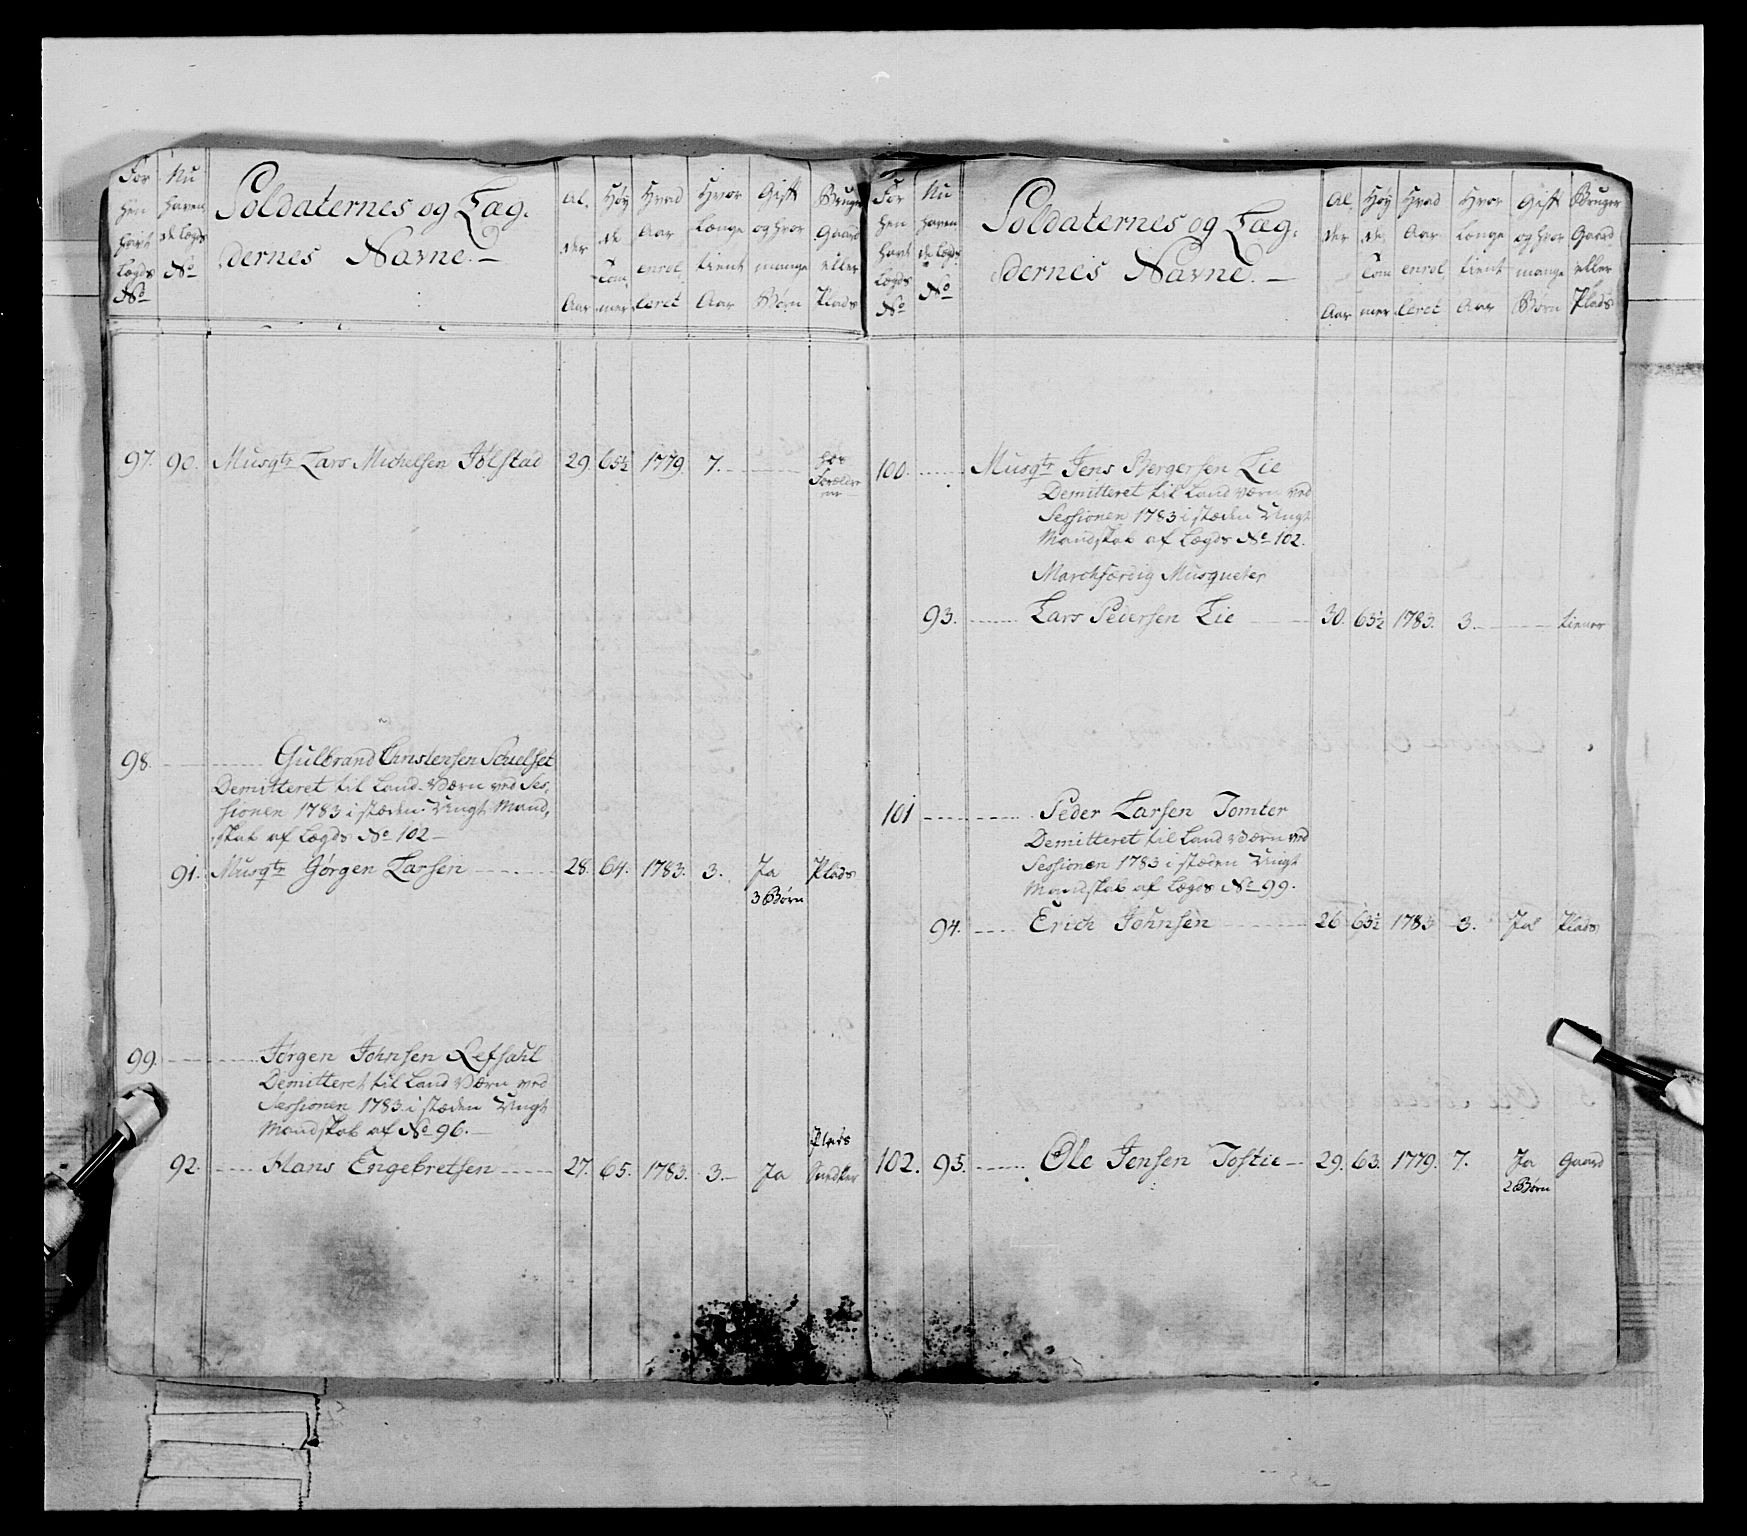 For hen havt Lægds No
Nu haven de Lægds No
Soldaternes og Læg-
dernes Navne.
Al. der Aar
Høy de Tom mer
Hvad Aar enrol leret
Hvor Længe tient Aar
Gift og hvor mange Børn
Bruger Gaard eller Plads
97. 90. Musqtr Lars Michelsen Jølstad 29 65½ 1779. 7. hos Forældre
98. Gulbrand Christensen Schulset
Demitteret til Land-Værn ved Ses-
sionen 1783 i stæden Ungt Mand-
skab af Lægds No 102
91. Musqtr Gørgen Larsen 28. 64. 1783. 3. Ja Plads
3 Børn
99. Jørgen Johnsen Refsahl
Demitteret til Land Værn ved
Sessionen 1783. i stæden Ungt
Mandskab af No 96.
Plads
92. Hans Engebretsen 27. 65. 1783. 3. Ja Snedker
For hen havt Lægds No
Nu haven de Lægds No
Soldaternes og Læg-
dernes Navne.
Al. der Aar
Høy de Tom mer
Hvad Aar enrol leret
Hvor Længe tient Aar
Gift og hvor mange Børn
Bruger Gaard eller Plads
100. Musqtr Jens Bergersen Lie
Demitteret til Land værn ved
Sessionen 1783 i stæden Ungt
Mandskab af Lægds No 102.
Marchfærdig Musqueter
93. Lars Pedersen Lie 30. 63½ 1783. 3. tiener
101 Peder Larsen Tomter
Demitteret til Land Værn ved
Sessionen 1783 i stæden Ungt
Mandskab af Lægds No 99.
94. Erich Johnsen 26 63½ 1783 3. Ja Plads
102. 95. Ole Jensen Tostie 29. 63. 1779. 7. Ja Gaard
2 Børn